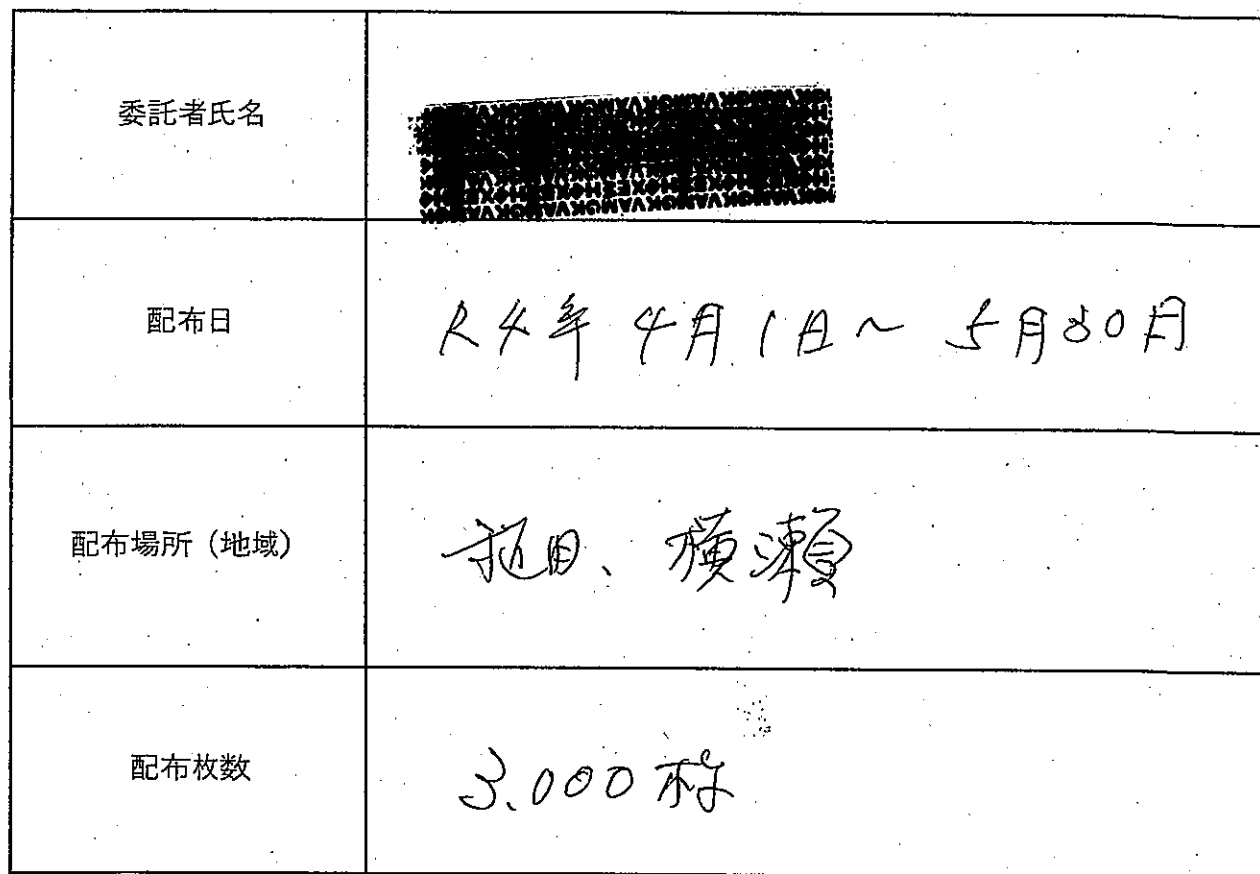 委託者氏名
配布日
R4年 4月1日~ 5月30日
配布場所(地域)
田、横瀬
配布枚数
3,000枚